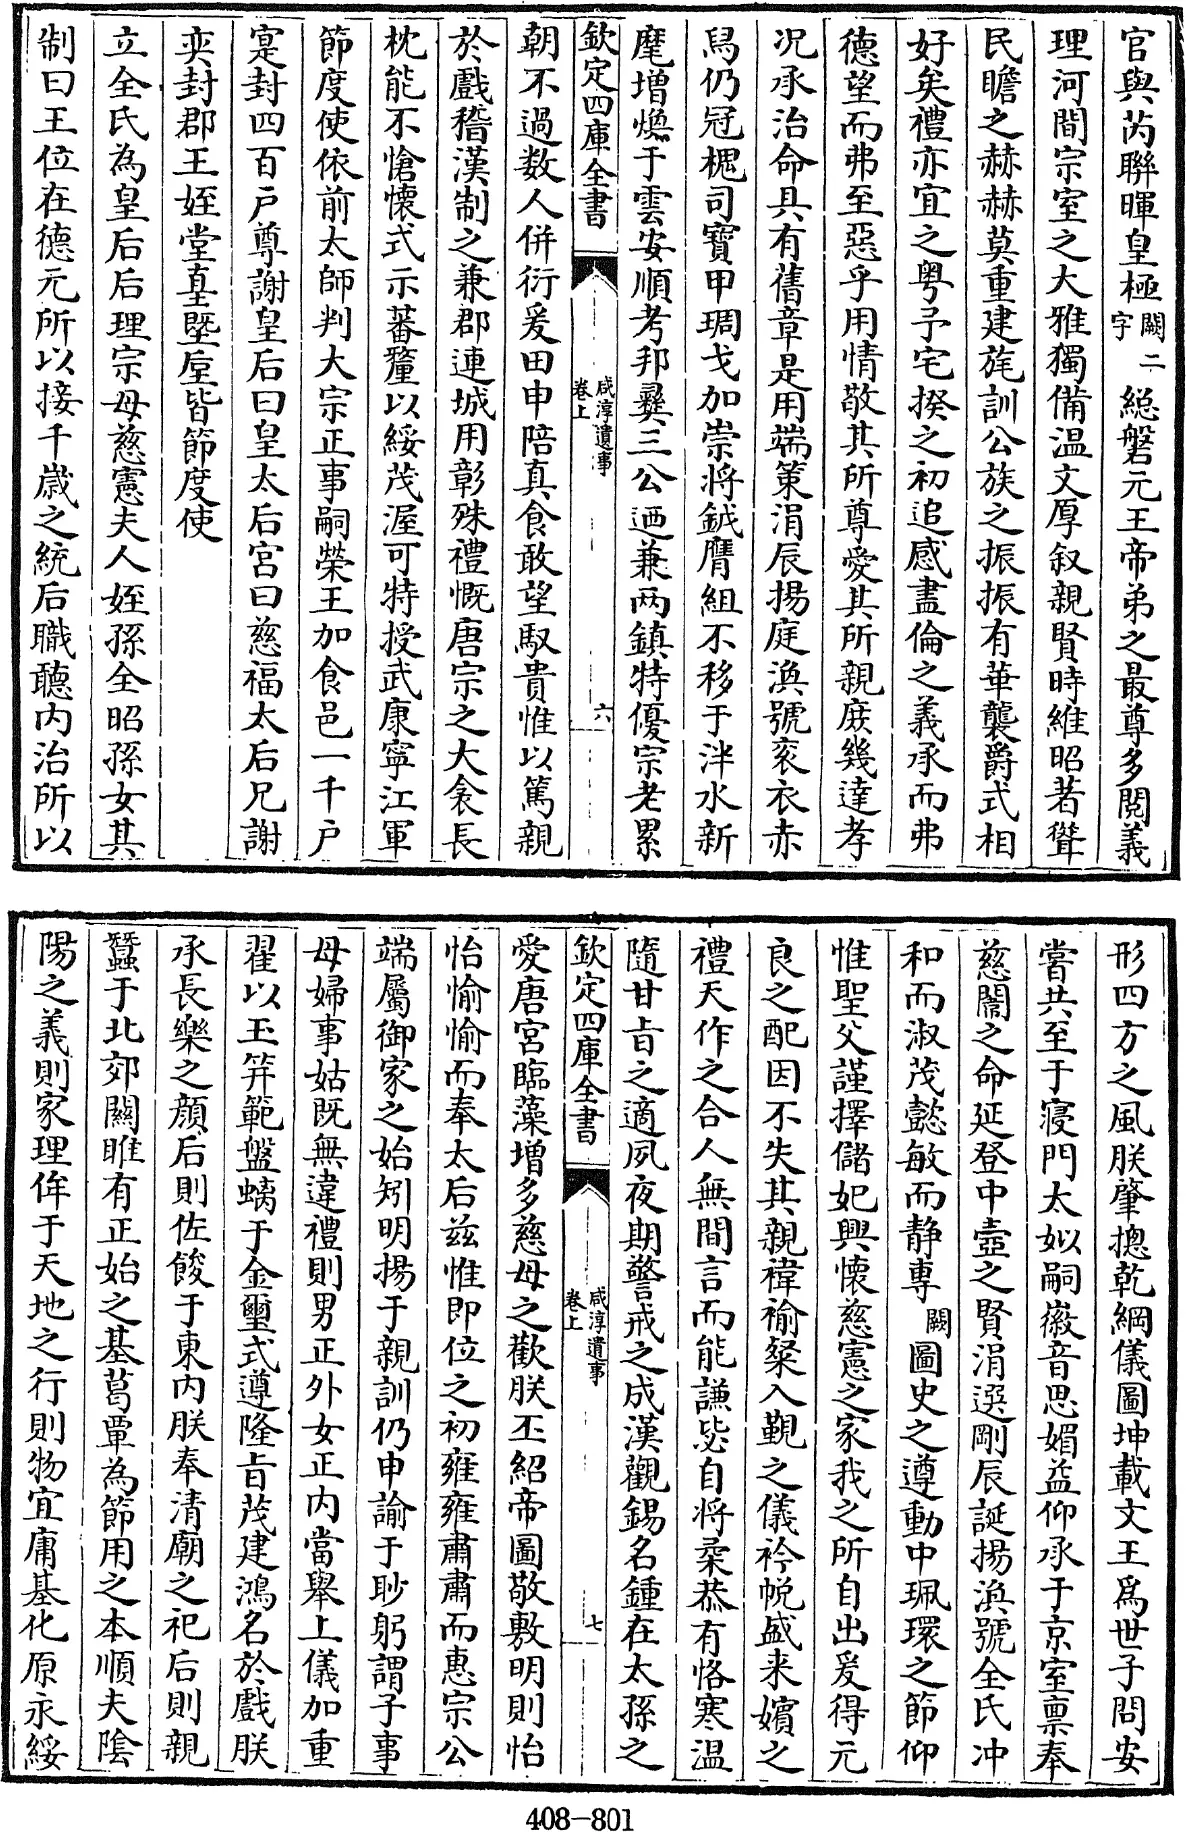 官與芮聯暉皇極闕二字總磐元王帝弟之最尊多閱義
理河間宗室之大雅獨備温文厚叙親賢時維昭著聳
民瞻之赫赫莫重建旄訓公族之振振有華襲爵式相
好矣禮亦宜之粤予宅揆之初追感盡倫之義承而弗
德望而弗至惡乎用情敬其所尊愛其所親庶幾達孝
况承治命具有舊章是用端策涓辰揚庭渙號衮衣赤
舄仍冠槐司寶甲琱戈加崇將鉞膺組不移于泮水新
麾增煥于雲安順考邦彝三公廼兼兩鎮特優宗老累
欽定四庫全書
咸淳遺事
卷上
六
朝不過数人併衍爰田申陪真食敢望馭貴惟以篤親
於戲稽漢制之兼郡連城用彰殊禮慨唐宗之大衾長
枕能不愴懷式示蕃釐以綏茂渥可特授武康寧江軍
節度使依前太師判大宗正事嗣榮王加食邑一千户
寔封四百户尊謝皇后曰皇太后宫曰慈福太后兄謝
奕封郡王姪堂𡌴塈垕皆節度使
立全氏為皇后后理宗母慈憲夫人姪孫全昭孫女其
制曰王位在德元所以接千歳之統后職聽内治所以
形四方之風朕肇摠乾綱儀圖坤載文王爲世子問安
嘗共至于寝門太姒嗣徽音思媚益仰承于京室禀奉
慈闈之命延登中壼之賢涓選剛辰誕揚渙號全氏冲
和而淑茂懿敏而静專闕圖史之遵動中珮環之節仰
惟聖父謹擇儲妃興懷慈憲之家我之所自出爰得元
良之配因不失其親褘褕粲入覲之儀衿帨盛来嬪之
禮天作之合人無間言而能謙毖自將柔恭有恪寒温
隨甘旨之適夙夜期警戒之成漢觀錫名鍾在太孫之
欽定四庫全書
咸淳遺事
卷上
七
愛唐宫臨藻增多慈母之歡朕丕紹帝圖敬敷明則怡
怡愉愉而奉太后兹惟即位之初雍雍肅肅而惠宗公
端屬御家之始矧明揚于親訓仍申諭于眇躬謂子事
母婦事姑既無違禮則男正外女正内當舉上儀加重
翟以玉笄範盤螭于金璽式遵隆旨茂建鴻名於戲朕
承長樂之顔后則佐餕于東内朕奉清廟之祀后則親
蠶于北郊關雎有正始之基葛覃為節用之本順夫陰
陽之義則家理侔于天地之行則物宜庸基化原永綏
408-801